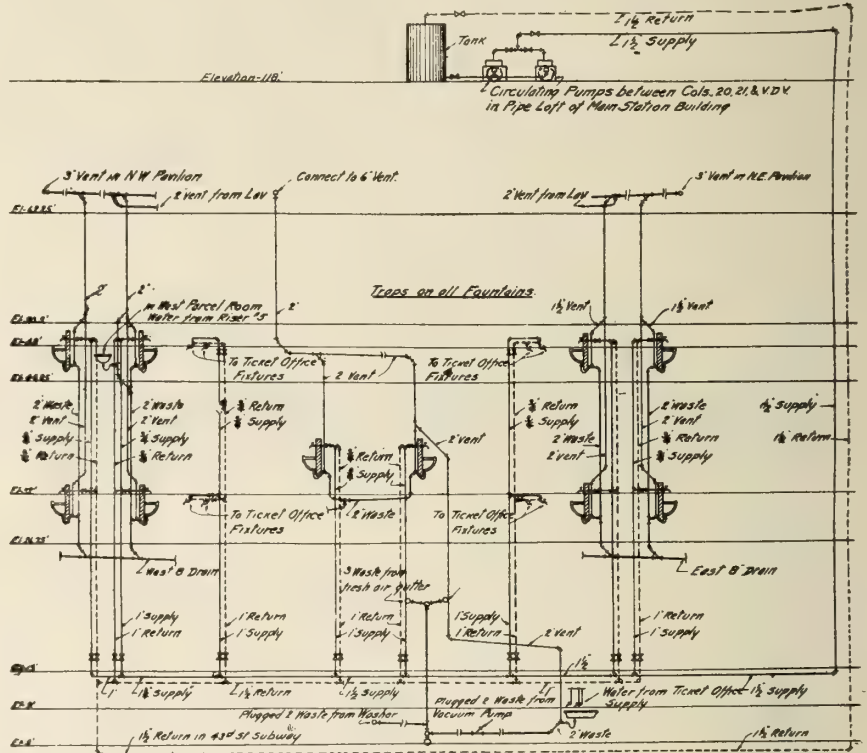 1½ Return
1½" Supply
Tank
Elevation-118'
Circulating Pumps between Cols. 20, 21, & V.D.V.
in Pipe Loft of Main Station Building
3" Vent in NW Pavilion
2" Vent from Lav
Connect to 6" Vent.
2" Vent from Lav
3" Vent in N.E. Pavilion
2"
2"
in West Parcel Room
Water from Riser #5
Traps on all Fountains.
2"
1½" Vent
1½" Vent
To Ticket Office
Fixtures
2" Vent
To Ticket Office
Fixtures
2" Waste
2" Vent
Supply
Return
2" Waste
2" Vent
Supply
Return
Return
Supply
Return
Supply
2" Vent
Return
Supply
2" Waste
2" Vent
2" Waste
2" Vent
Return
Supply
1½" Supply
1½" Return
To Ticket Office
Fixtures
2" Waste
To Ticket Office
Fixtures
West 8" Drain
3" Waste from
fresh air gutter
East 8" Drain
1" Supply
1" Return
1" Return
1" Supply
1" Return
1" Supply
1" Supply
1" Return
2" Vent
1" Return
1" Supply
1"
Supply
1½ Return
1½ Supply
1"
1½"
Water from Ticket Office
Supply
1½" Supply
Plugged 2" Waste from Washer
Plugged 2" Waste from
Vacuum Pump
2" Waste
1½" Return in 43rd St Subway
1½" Return